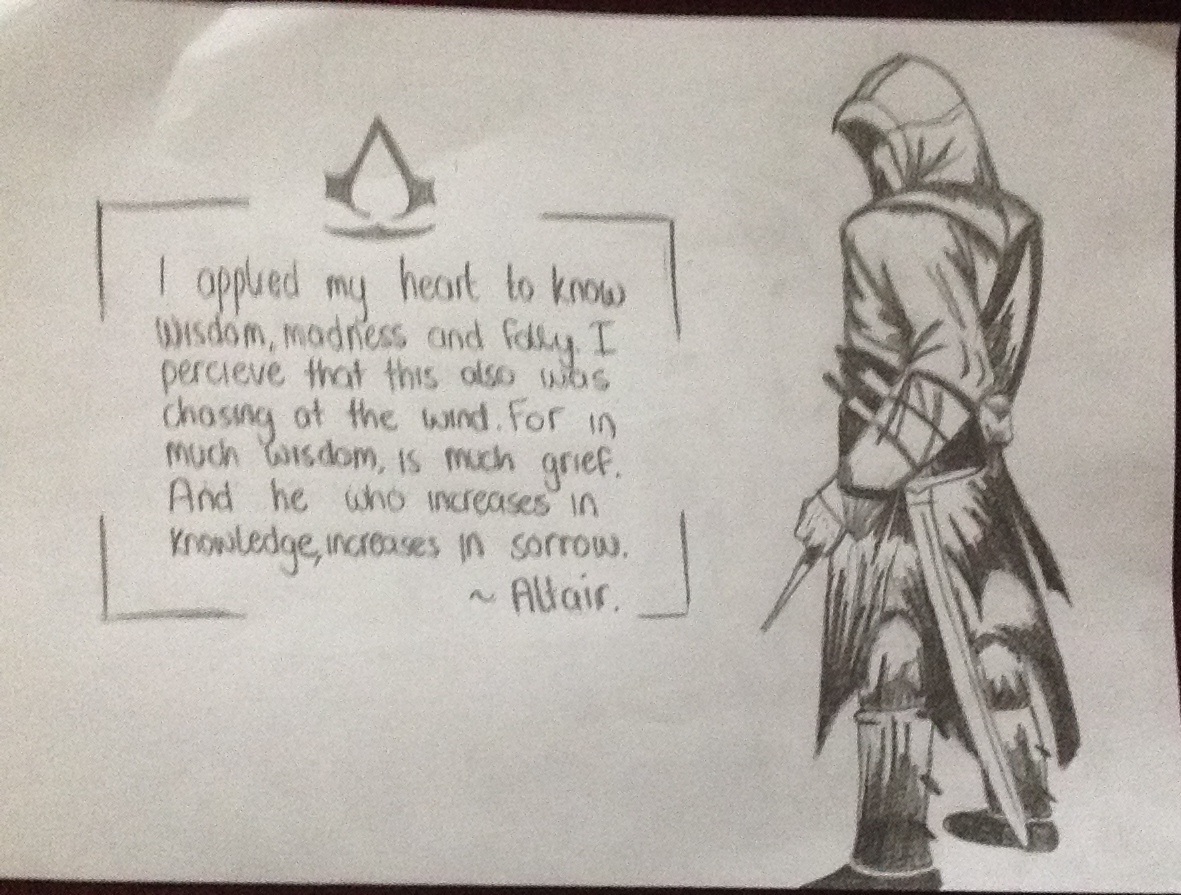 I applied my heart to know
wisdom, madness and folly. I
percieve that this also was
chasing at the wind. For in
much wisdom, is much grief.
And he who increases in
knowledge, increases in sorrow.
~ Altair.